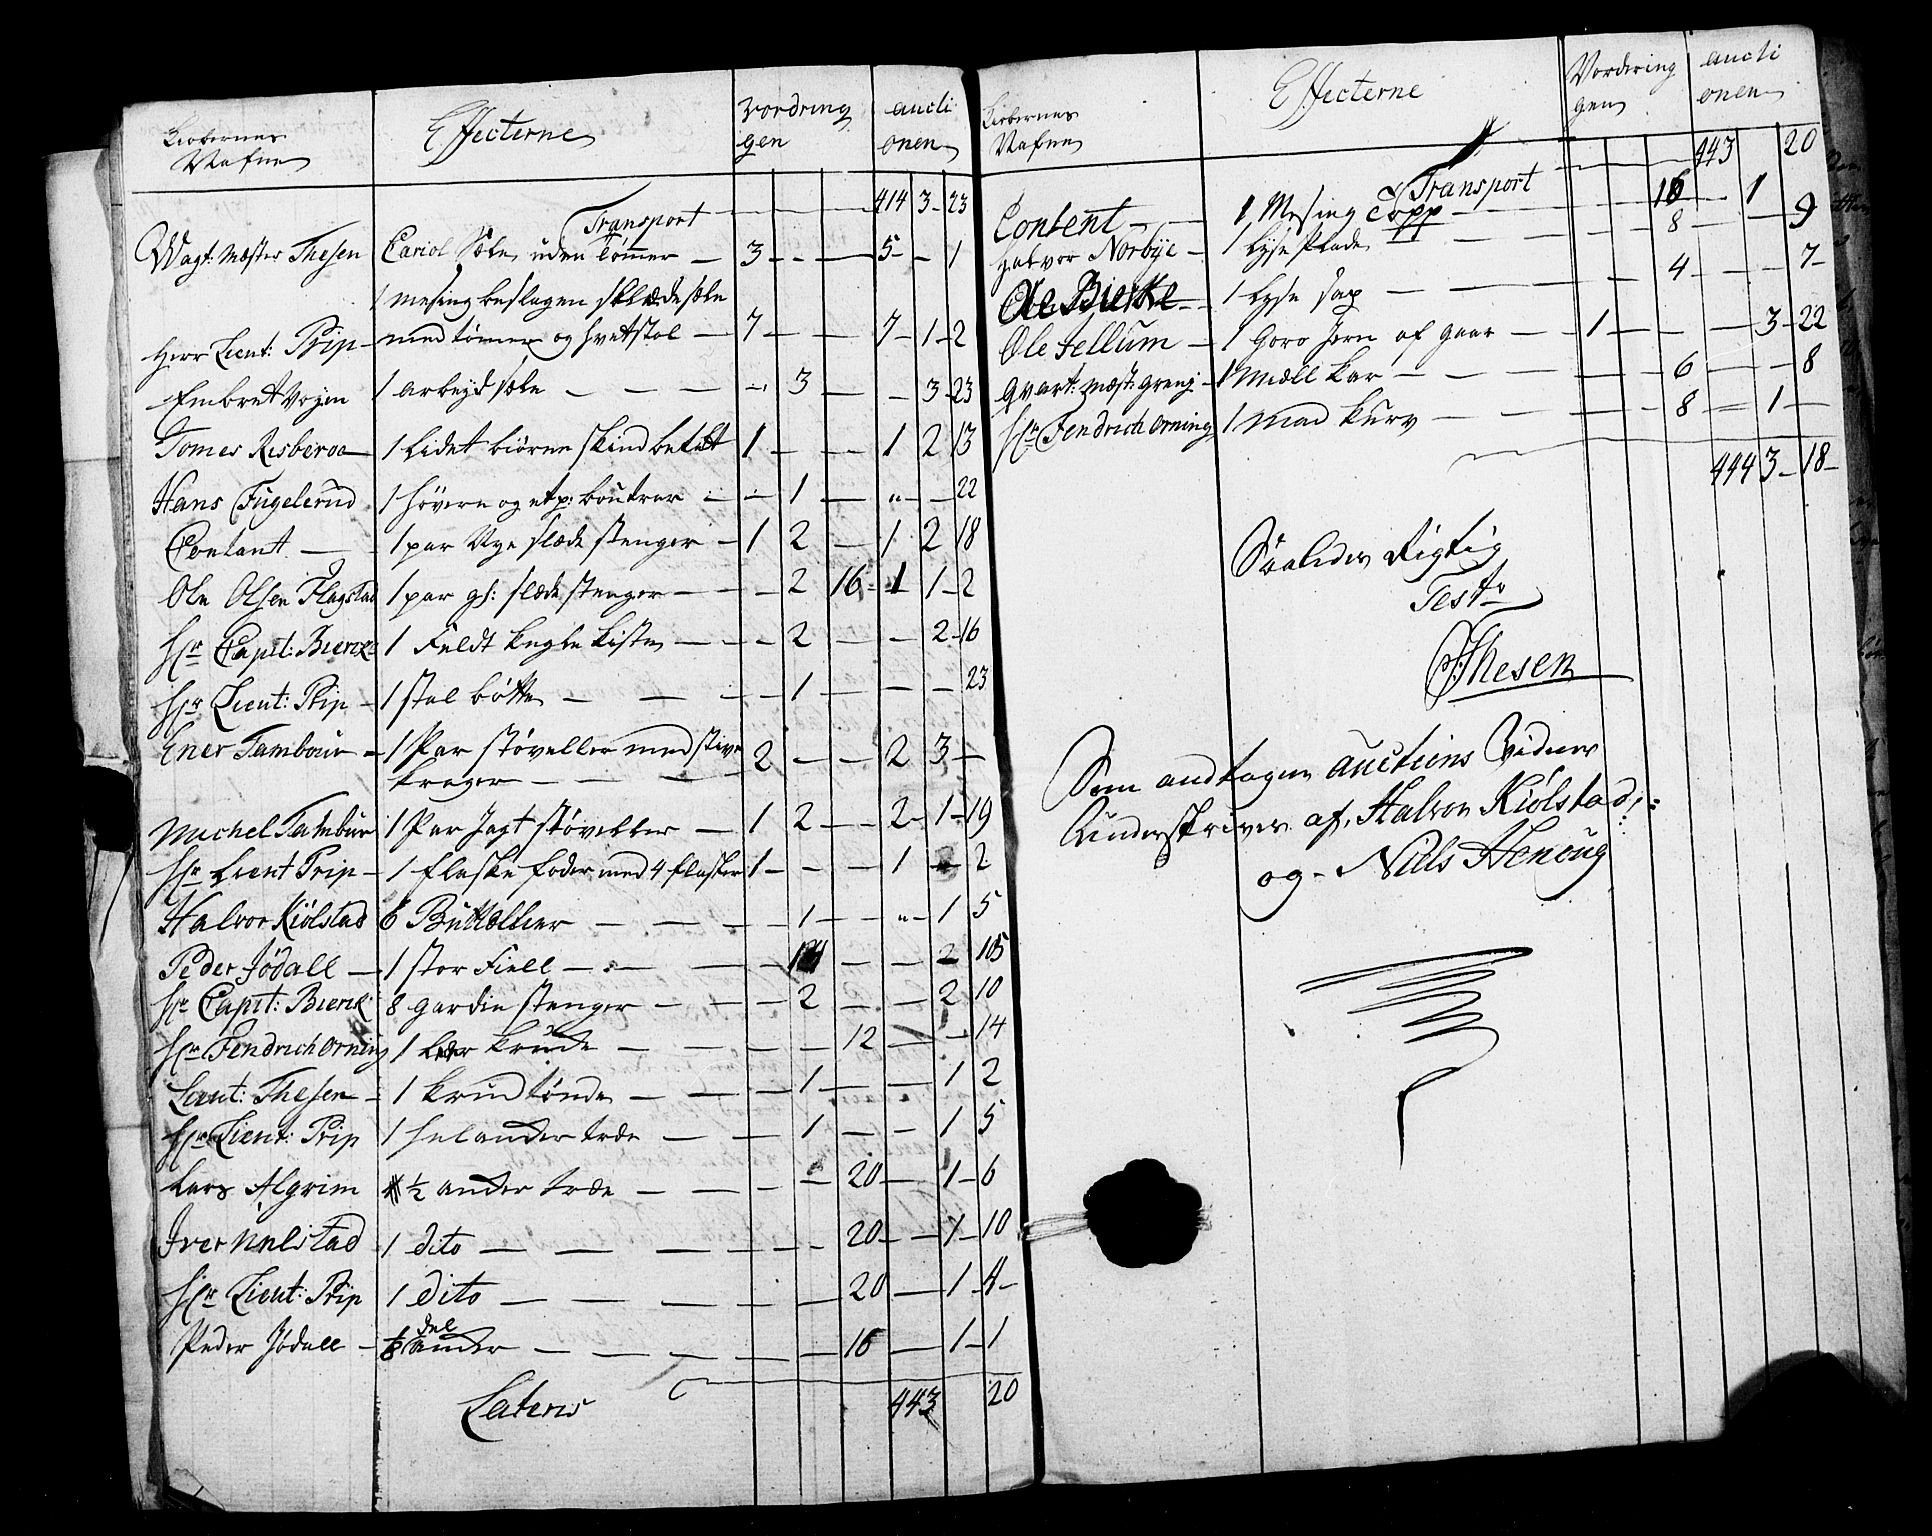 Kiøbernes Nafne Effecterne Vordring gen aucti onen
Transport — — — 414 3 23
Wagt: Mæster Thesen Cariol Sæle uden Tømmer — 3 — — 5 — 1
1 Mesing beslagen Slædesæle
Herr Lieut: Prip — med tømer og Svetstol — 7 — — 7 — 1 — 2
Embret Vojen 1 arbeyd sæle — — — 3 — 3 — 23
Tomes Risberoe — 1 Lidet biørne skind betekt 1 — — 1 2 13
Hans Fugelerud 1 Høvere og etp: boutrer — 1 — " — 22
Contant — — 1 par Nye slæde stenger — 1 2 — 1 2 18
Ole Olsen Flagstad 1 par gl: slæde stenger — — — 2 16 — 1 — 1 — 2
Hr Capit: Bierck 1 Feldt kugle kiste — — 2 — — 2 — 16
Hr Lieut: Prip — 1 stal bøtte — — — 1 — — — 23
Ener Tambour — 1 Par støveller med stive 2 — — 2 3 —
krager — — —
Michel Tambur 1 Par Jagt støveller — 1 2 — 2 — 1 — 19
Hr Lieut Prip — 1 flaske foder med 4 flasker 1 — — — 1 — 2
Halvor Kiølstad 6 Buttællier — — — 1 — — " — 1 5
Peder Jødall — 1 stor Fiell — — — — — 2
Hr Capit: Bierck 8 gardin stenger — — — 2 — — 2 10
Hr Fendrich Orning 1 Leder krude — — — — 12 — — 14
Lieut: Thesen — 1 krud tønde — — — 1 — — 1 2
Hr Lieut: Prip 1 hel ander træe — — — 1 — — 1 5
Lars Algrim ½ ander træe — — — — 20 — 1 — 6
Iver Nelstad 1 dito — — — — 20 — — 1 — 10
Hr Lieut: Prip 1 dito — — — — 20 — 1 — 4 —
Peder Jødall — ⅛ del ander — — — — 16 — 1 — 1
Lateris 443 20
Kiøbernes Nafne Effecterne Vordring gen aucti onen
Transport — — 443 20
Content — — 1 Mesing Copp — — — 16 — — 1
Halvor Norbye — 1 Lyse Plade — — — — 8 — — 9
Ole Bierke — 1 Lyse sax — — — — 4 — — — 7 —
Ole Jellum — 1 Goro Jern af gaar — — 1 — — — 3 — 22
Qvart: Mæst: Grenj — 1 Mæll kar — — — — 6 — — 8
Hr Fendrich Orning 1 Mad kurv — — — — 8 — 1 —
444 3 — 18 —
Saaledes Rigtig
Test
Thesen
Som andtagen auctions Vidner
Underskriver af, Halvor Kiølstad
og - Niels Heneug